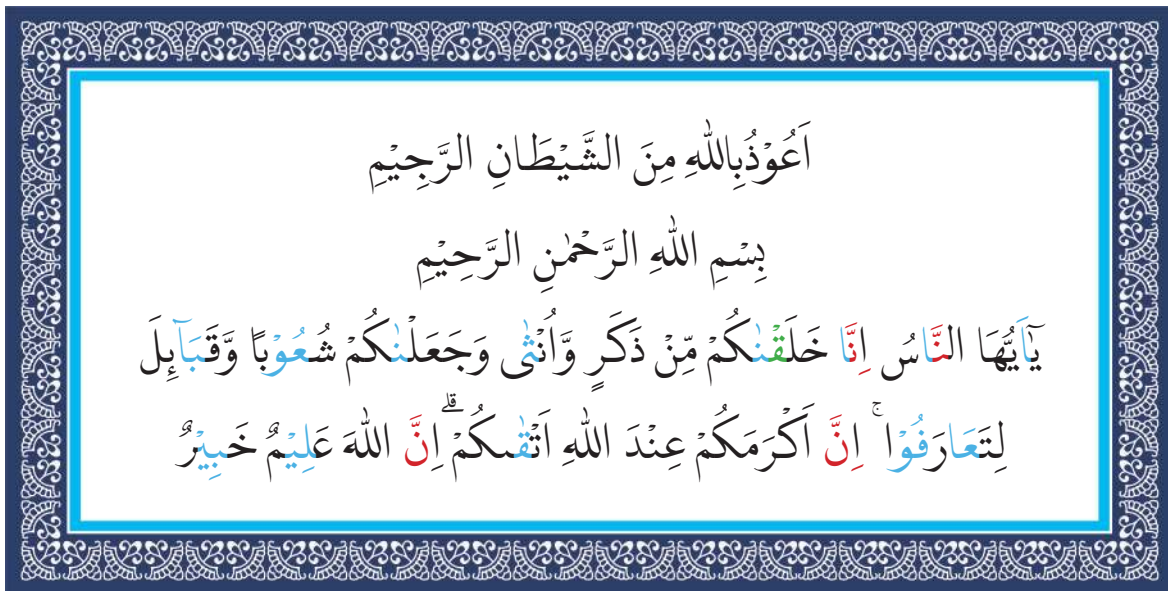 اَعُوْذُبِاللّٰهِ مِنَ الشَّيْطَانِ الرَّجِيْمِ
بِسْمِ اللّٰهِ الرَّحْمٰنِ الرَّحِيْمِ
يٰٓاَيُّهَا النَّاسُ اِنَّا خَلَقْنٰكُمْ مِّنْ ذَكَرٍ وَّاُنْثٰى وَجَعَلْنٰكُمْ شُعُوْبًا وَّقَبَآىِٕلَ
لِتَعَارَفُوْا ۚ اِنَّ اَكْرَمَكُمْ عِنْدَ اللّٰهِ اَتْقٰىكُمْ ۗ اِنَّ اللّٰهَ عَلِيْمٌ خَبِيْرٌ